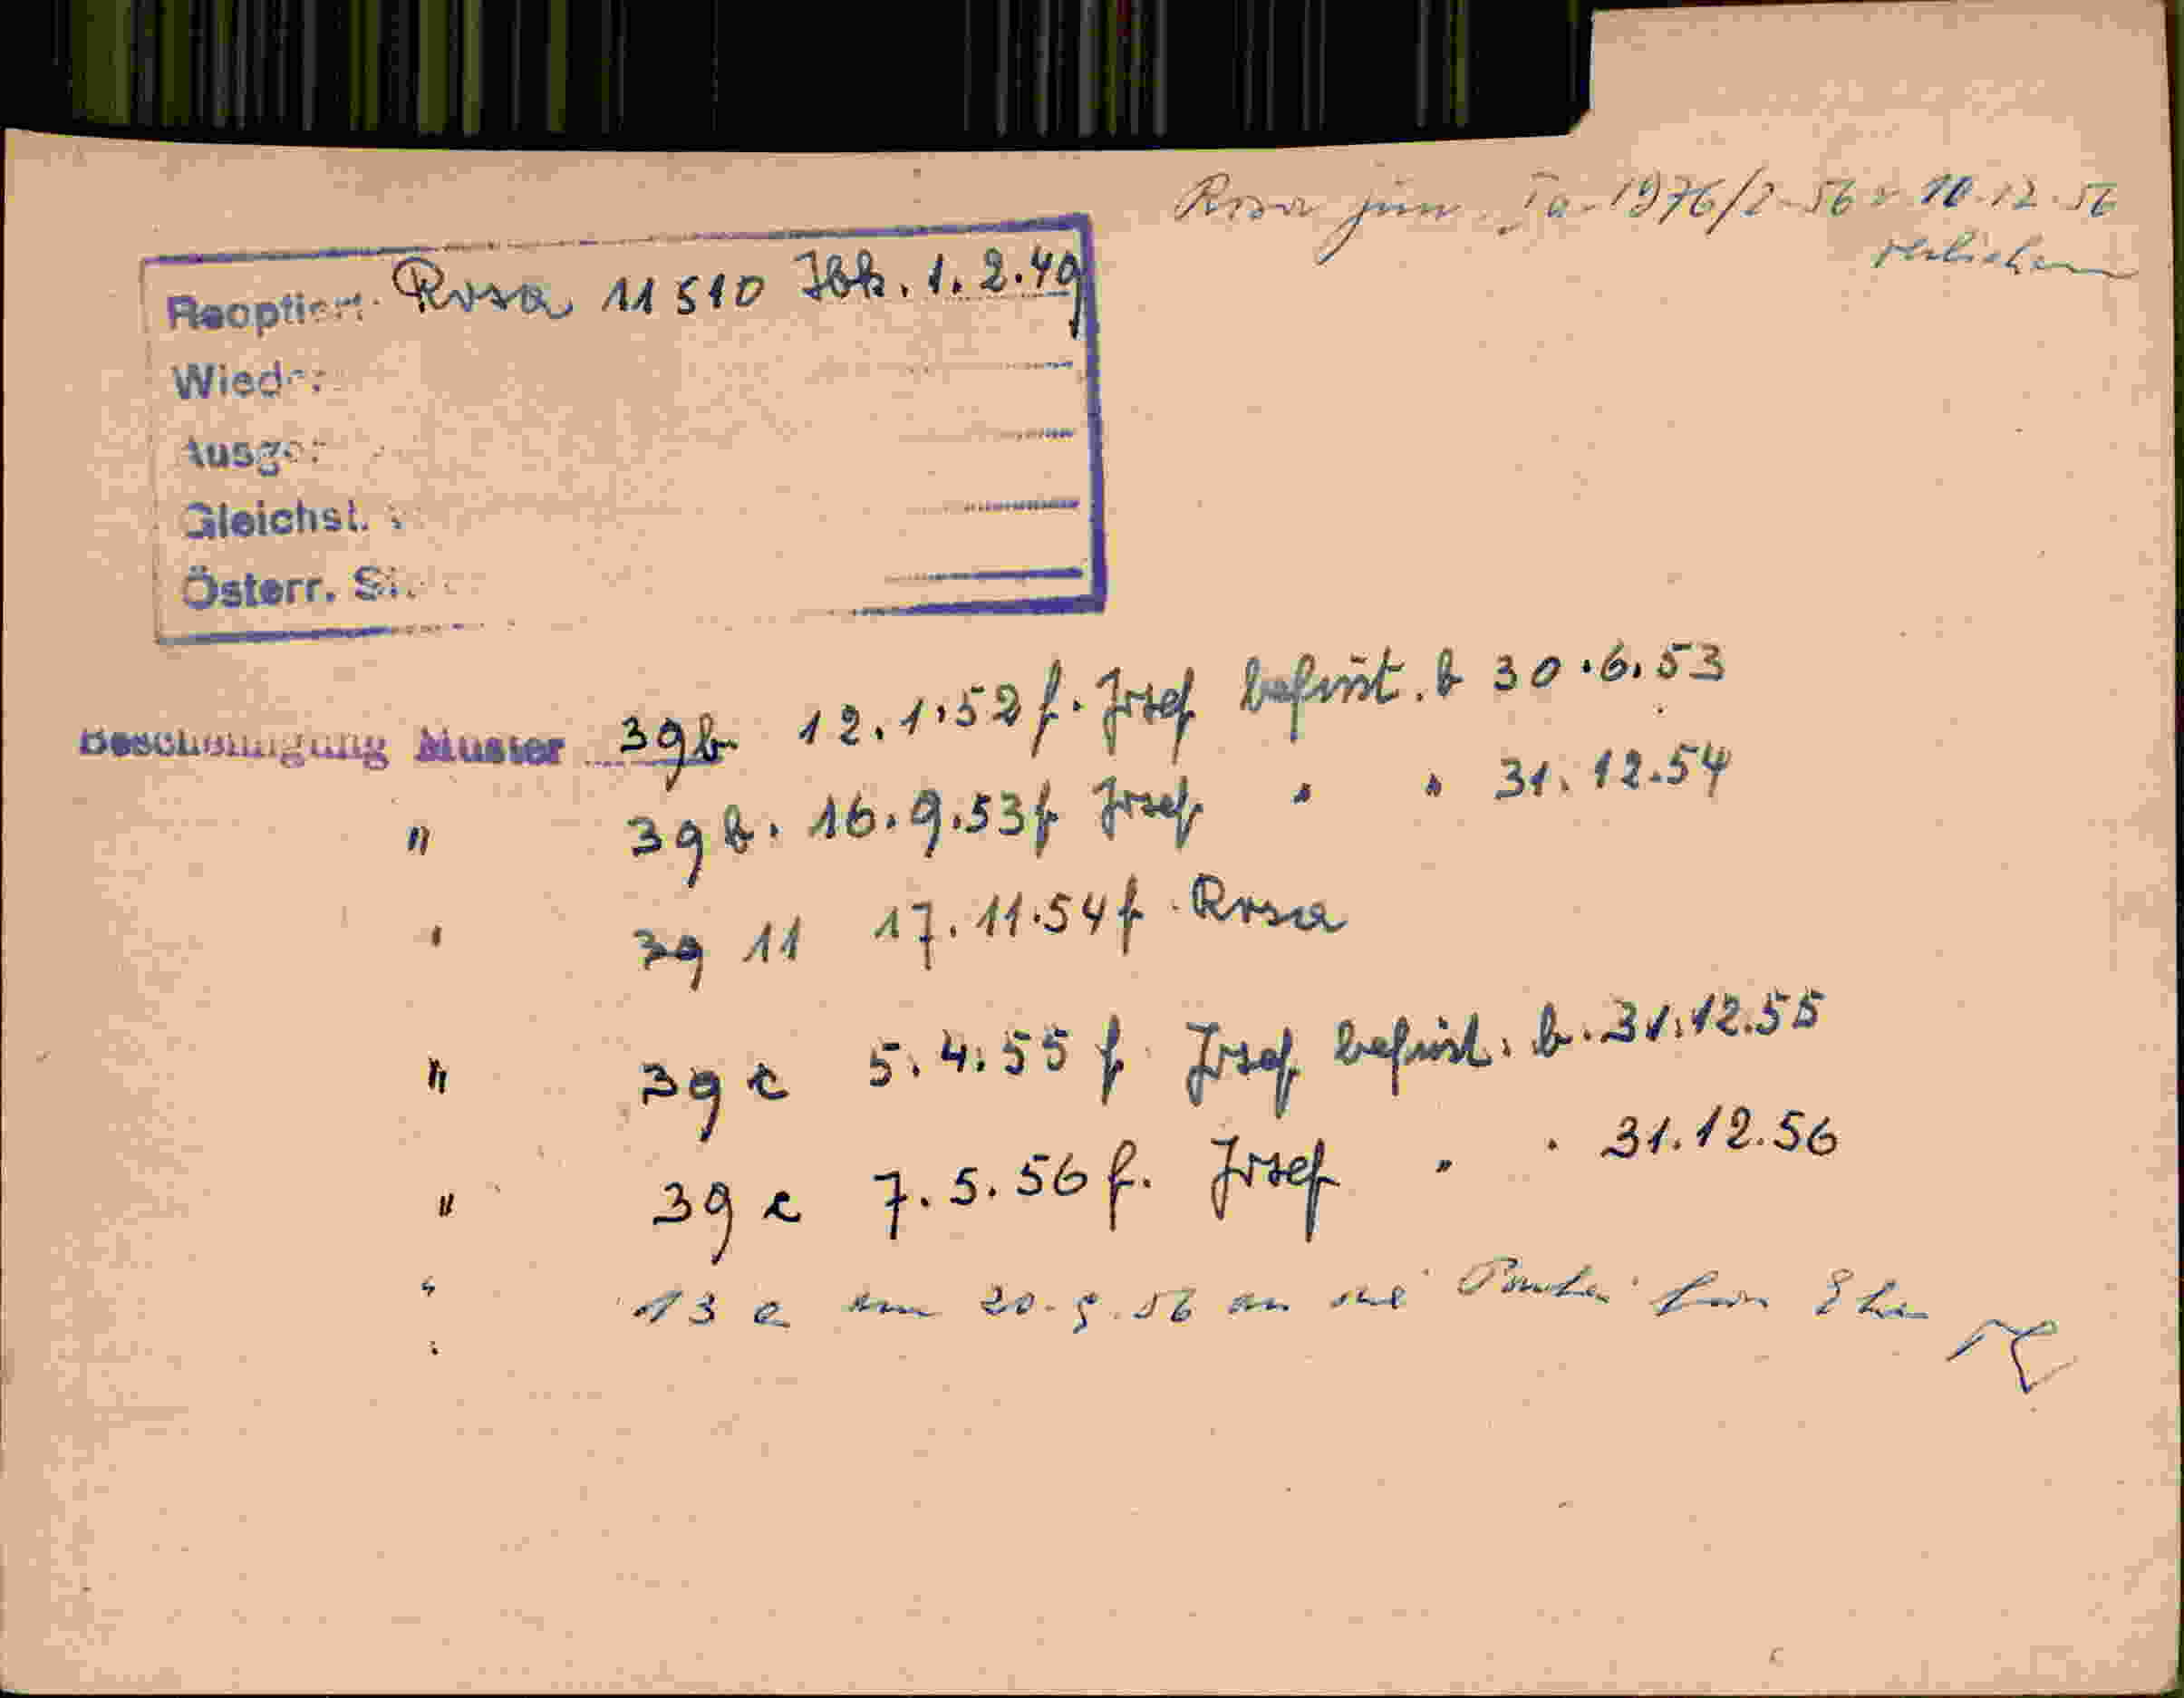 Rosa jun. Ia-1976/2-56 v. 10.12.56
Reoptiert: Rosa 11510 Ibk. 1.2.49
Wied.:
Ausge:
Gleichst. :
Österr. St.
Bescheinigung Muster 39b 12.1.52 f. Josef befrist. b 30.6.53
" 39b. 16.9.53 f Josef " " 31.12.54
" 39 11 17.11.54 f. Rosa
" 39c 5.4.55 f. Josef befrist. b. 31.12.55
" 39c 7.5.56 f. Josef " " 31.12.56
" 13e am 20.9.56 an